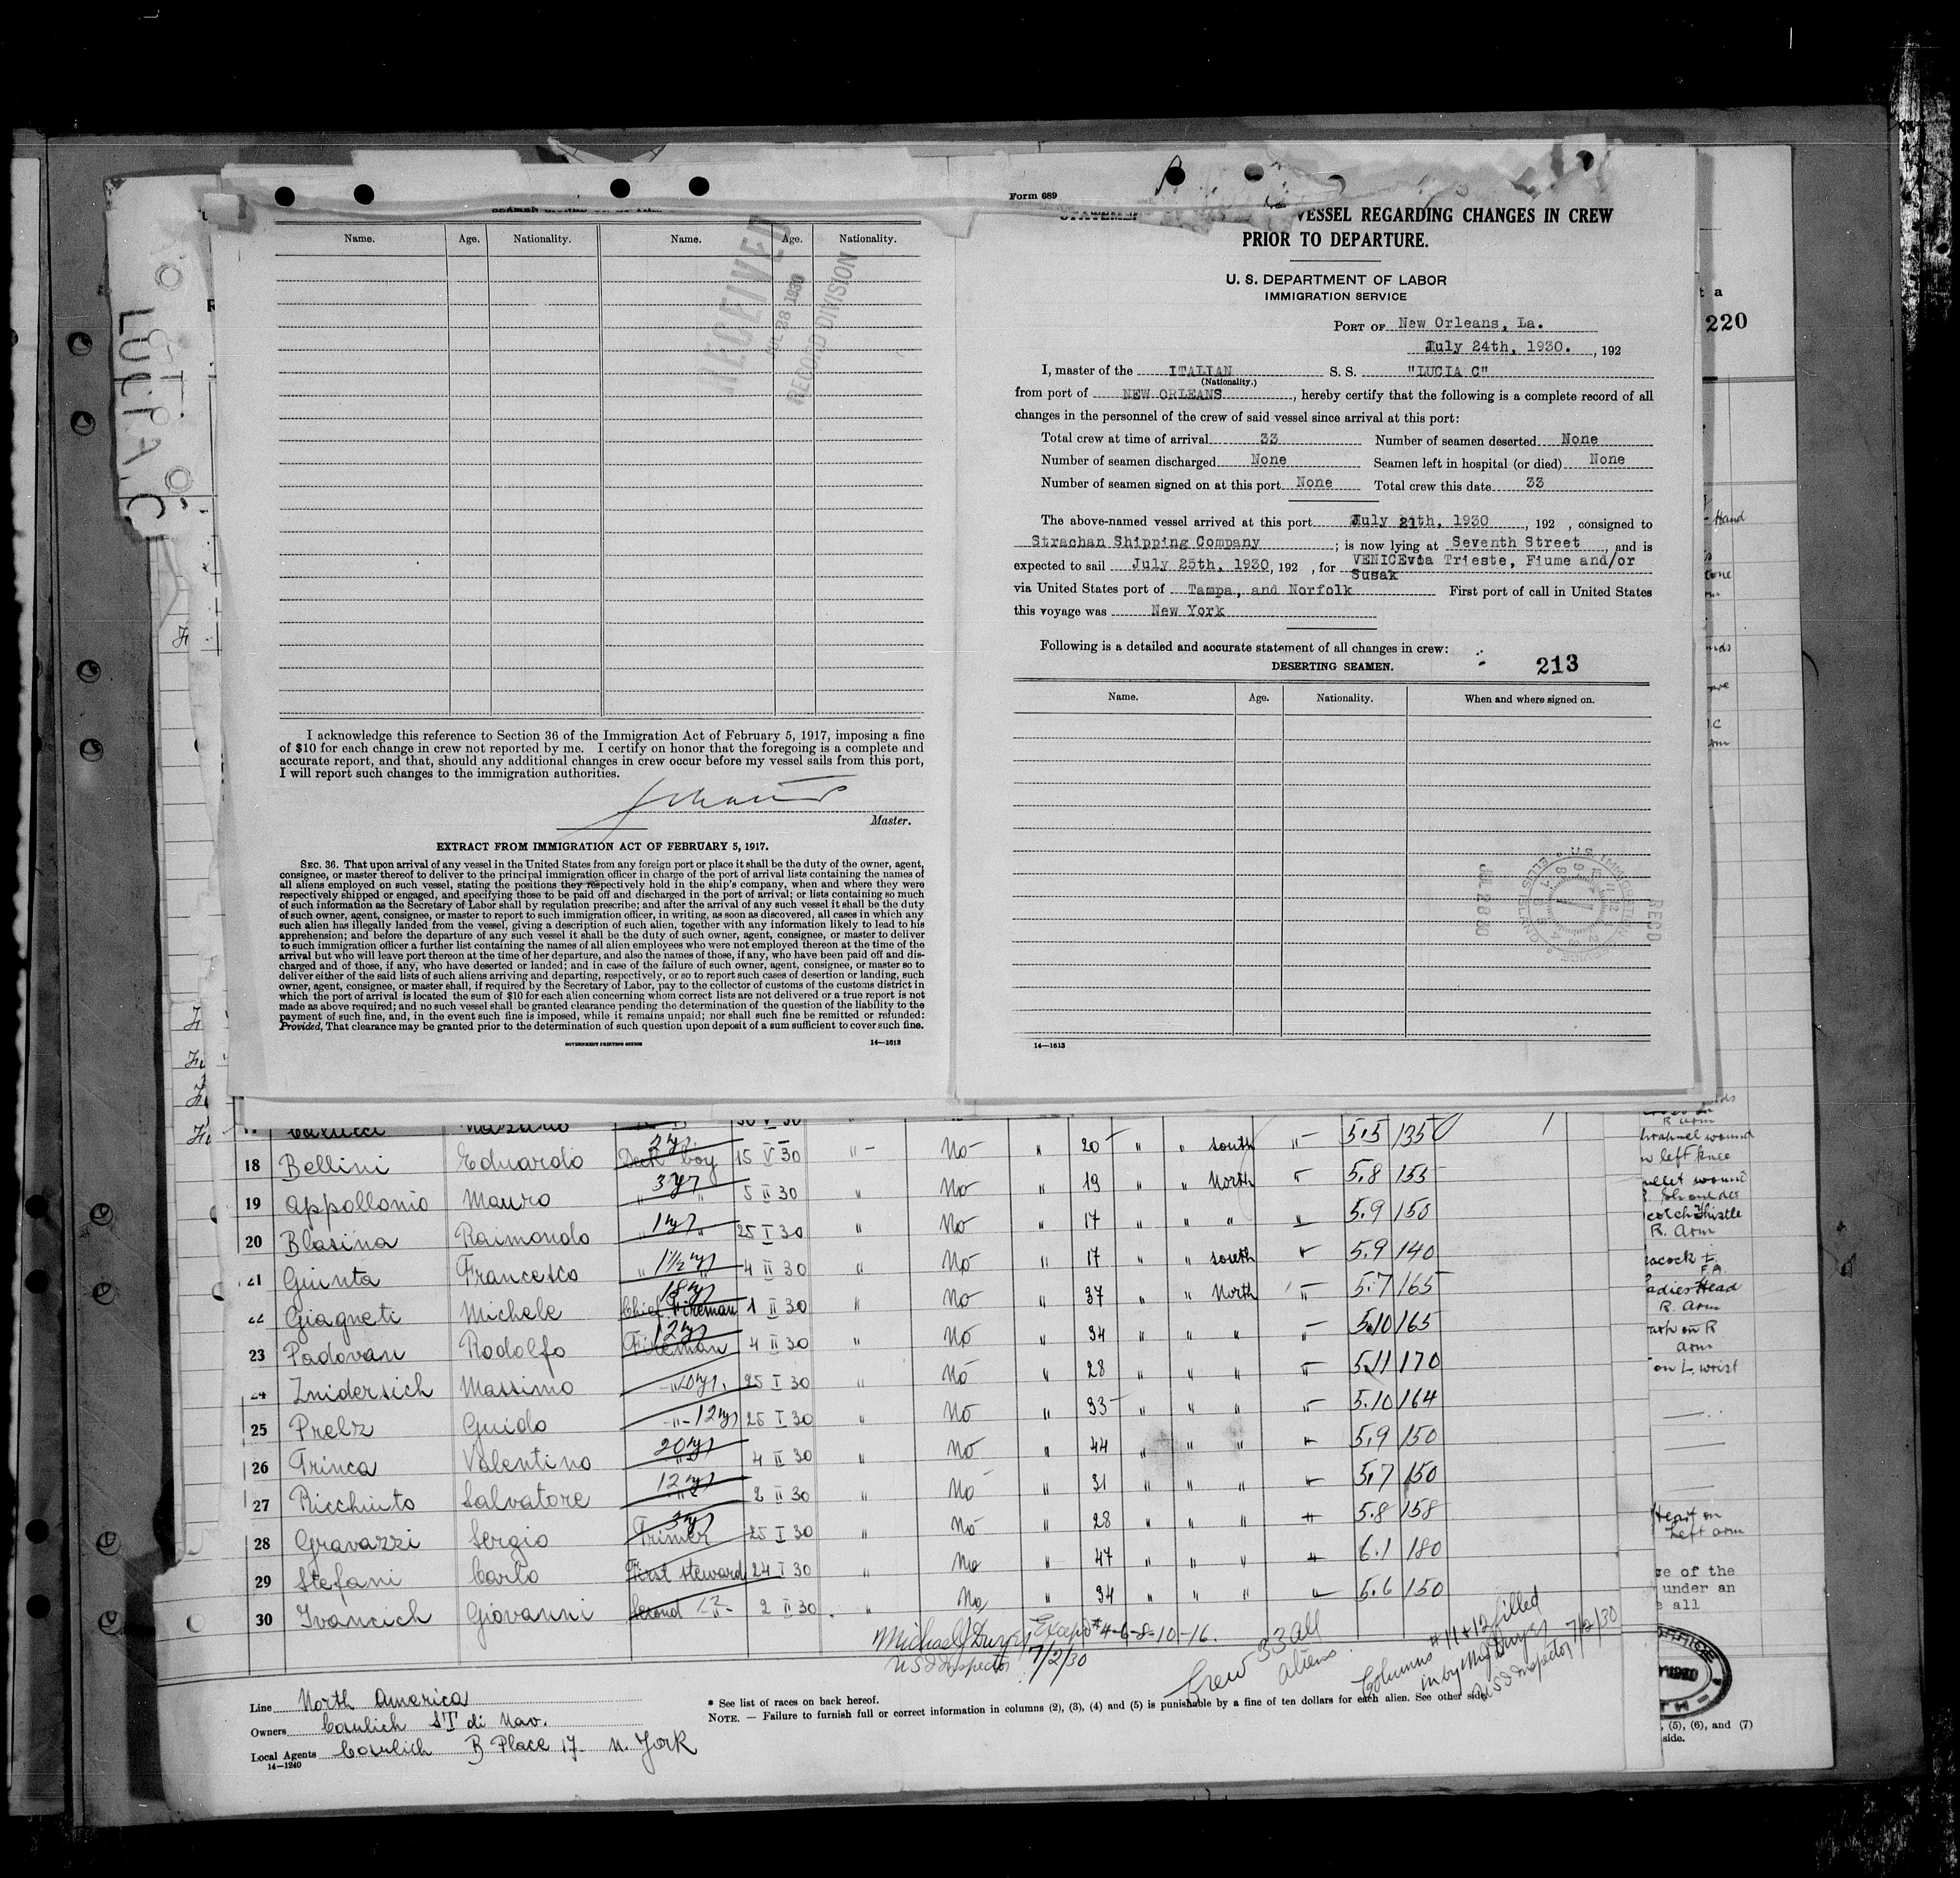 LUCIA C
Form 689
VESSEL REGARDING CHANGES IN CREW
PRIOR TO DEPARTURE.
U. S. DEPARTMENT OF LABOR
IMMIGRATION SERVICE
PORT OF New Orleans, La.
July 24th, 1930. , 192
I, master of the ITALIAN S. S. "LUCIA C"
(Nationality.)
from port of NEW ORLEANS, hereby certify that the following is a complete record of all
changes in the personnel of the crew of said vessel since arrival at this port:
Total crew at time of arrival 33 Number of seamen deserted None
Number of seamen discharged None Seamen left in hospital (or died) None
Number of seamen signed on at this port None Total crew this date 33
The above-named vessel arrived at this port July 21th, 1930, 192 , consigned to
Strachan Shipping Company; is now lying at Seventh Street, and is
expected to sail July 25th, 1930, 192 , for VENICE via Trieste, Fiume and/or
Susak
via United States port of Tampa, and Norfolk First port of call in United States
this voyage was New York
Following is a detailed and accurate statement of all changes in crew:
DESERTING SEAMEN.
213
Name. Age. Nationality. When and where signed on.
14—1613
Name. Age. Nationality. Name. Age. Nationality.
RECEIVED
JUL 28 1930
RECORD DIVISION
I acknowledge this reference to Section 36 of the Immigration Act of February 5, 1917, imposing a fine
of $10 for each change in crew not reported by me. I certify on honor that the foregoing is a complete and
accurate report, and that, should any additional changes in crew occur before my vessel sails from this port,
I will report such changes to the immigration authorities.
Master.
EXTRACT FROM IMMIGRATION ACT OF FEBRUARY 5, 1917.
SEC. 36. That upon arrival of any vessel in the United States from any foreign port or place it shall be the duty of the owner, agent,
consignee, or master thereof to deliver to the principal immigration officer in charge of the port of arrival lists containing the names of
all aliens employed on such vessel, stating the positions they respectively hold in the ship's company, when and where they were
respectively shipped or engaged, and specifying those to be paid off and discharged in the port of arrival; or lists containing so much
of such information as the Secretary of Labor shall by regulation prescribe; and after the arrival of any such vessel it shall be the duty
of such owner, agent, consignee, or master to report to such immigration officer, in writing, as soon as discovered, all cases in which any
such alien has illegally landed from the vessel, giving a description of such alien, together with any information likely to lead to his
apprehension; and before the departure of any such vessel it shall be the duty of such owner, agent, consignee, or master to deliver
to such immigration officer a further list containing the names of all alien employees who were not employed thereon at the time of the
arrival but who will leave port thereon at the time of her departure, and also the names of those, if any, who have been paid off and dis-
charged and of those, if any, who have deserted or landed; and in case of the failure of such owner, agent, consignee, or master so to
deliver either of the said lists of such aliens arriving and departing, respectively, or so to report such cases of desertion or landing, such
owner, agent, consignee, or master shall, if required by the Secretary of Labor, pay to the collector of customs of the customs district in
which the port of arrival is located the sum of $10 for each alien concerning whom correct lists are not delivered or a true report is not
made as above required; and no such vessel shall be granted clearance pending the determination of the question of the liability to the
payment of such fine, and, in the event such fine is imposed, while it remains unpaid; nor shall such fine be remitted or refunded:
Provided, That clearance may be granted prior to the determination of such question upon deposit of a sum sufficient to cover such fine.
GOVERNMENT PRINTING OFFICE 14—1613
JUL 28 30
RECD
220
18 Bellini Eduardo Deck boy 2 yr 15 V 30 " No " 20 " " south " 5.5 135
19 Appollonio Mauro " 3 yr " 5 II 30 " No " 19 " " North " 5.8 155
20 Blasina Raimondo " 1 yr " 25 I 30 " No " 17 " " " " 5.9 150
21 Giunta Francesco " 1½ yr " 4 II 30 " No " 17 " " south " 5.9 140
22 Giagneti Michele Chief Fireman 18 yr 1 II 30 " No " 37 " " North " 5.7 165
23 Padovan Rodolfo Fireman 12 yr 4 II 30 " No " 34 " " " " 5.10 165
24 Znidersich Massimo " 10 yr. 25 I 30 " No " 28 " " " " 5.11 170
25 Prelz Guido -"- 12 yr 25 I 30 " No " 33 " " " " 5.10 164
26 Trinca Valentino 20 yr " 4 II 30 " No " 44 " " " " 5.9 150
27 Ricchiuto Salvatore 12 yr " 2 II 30 " No " 31 " " " " 5.7 150
28 Gravazzi Sergio Trimer 3 yr 25 I 30 " No " 28 " " " " 5.8 158
29 Stefani Carlo First steward 24 I 30 " No " 47 " " " " 6.1 180
30 Ivancich Giovanni Second -"- 2 II 30 " No " 34 " " " " 5.6 150
Michael Dwyer Except #4-6-8-10-16.
US Inspector 7/2/30
Crew 33 all
aliens
Columns #11+12 filled
in by
US Inspector 7/2/30
Line North America
Owners Cosulich ST di Nav.
Local Agents Cosulich B Place 17 N. York
14—1240
* See list of races on back hereof.
NOTE. — Failure to furnish full or correct information in columns (2), (3), (4) and (5) is punishable by a fine of ten dollars for each alien. See other side.
Hand
R arm
wound
left knee
wound
R. Arm
Head
R. Arm
on R
arm
on L. wrist
on
Left arm
of the
under an
all
, (5), (6), and (7)
side.